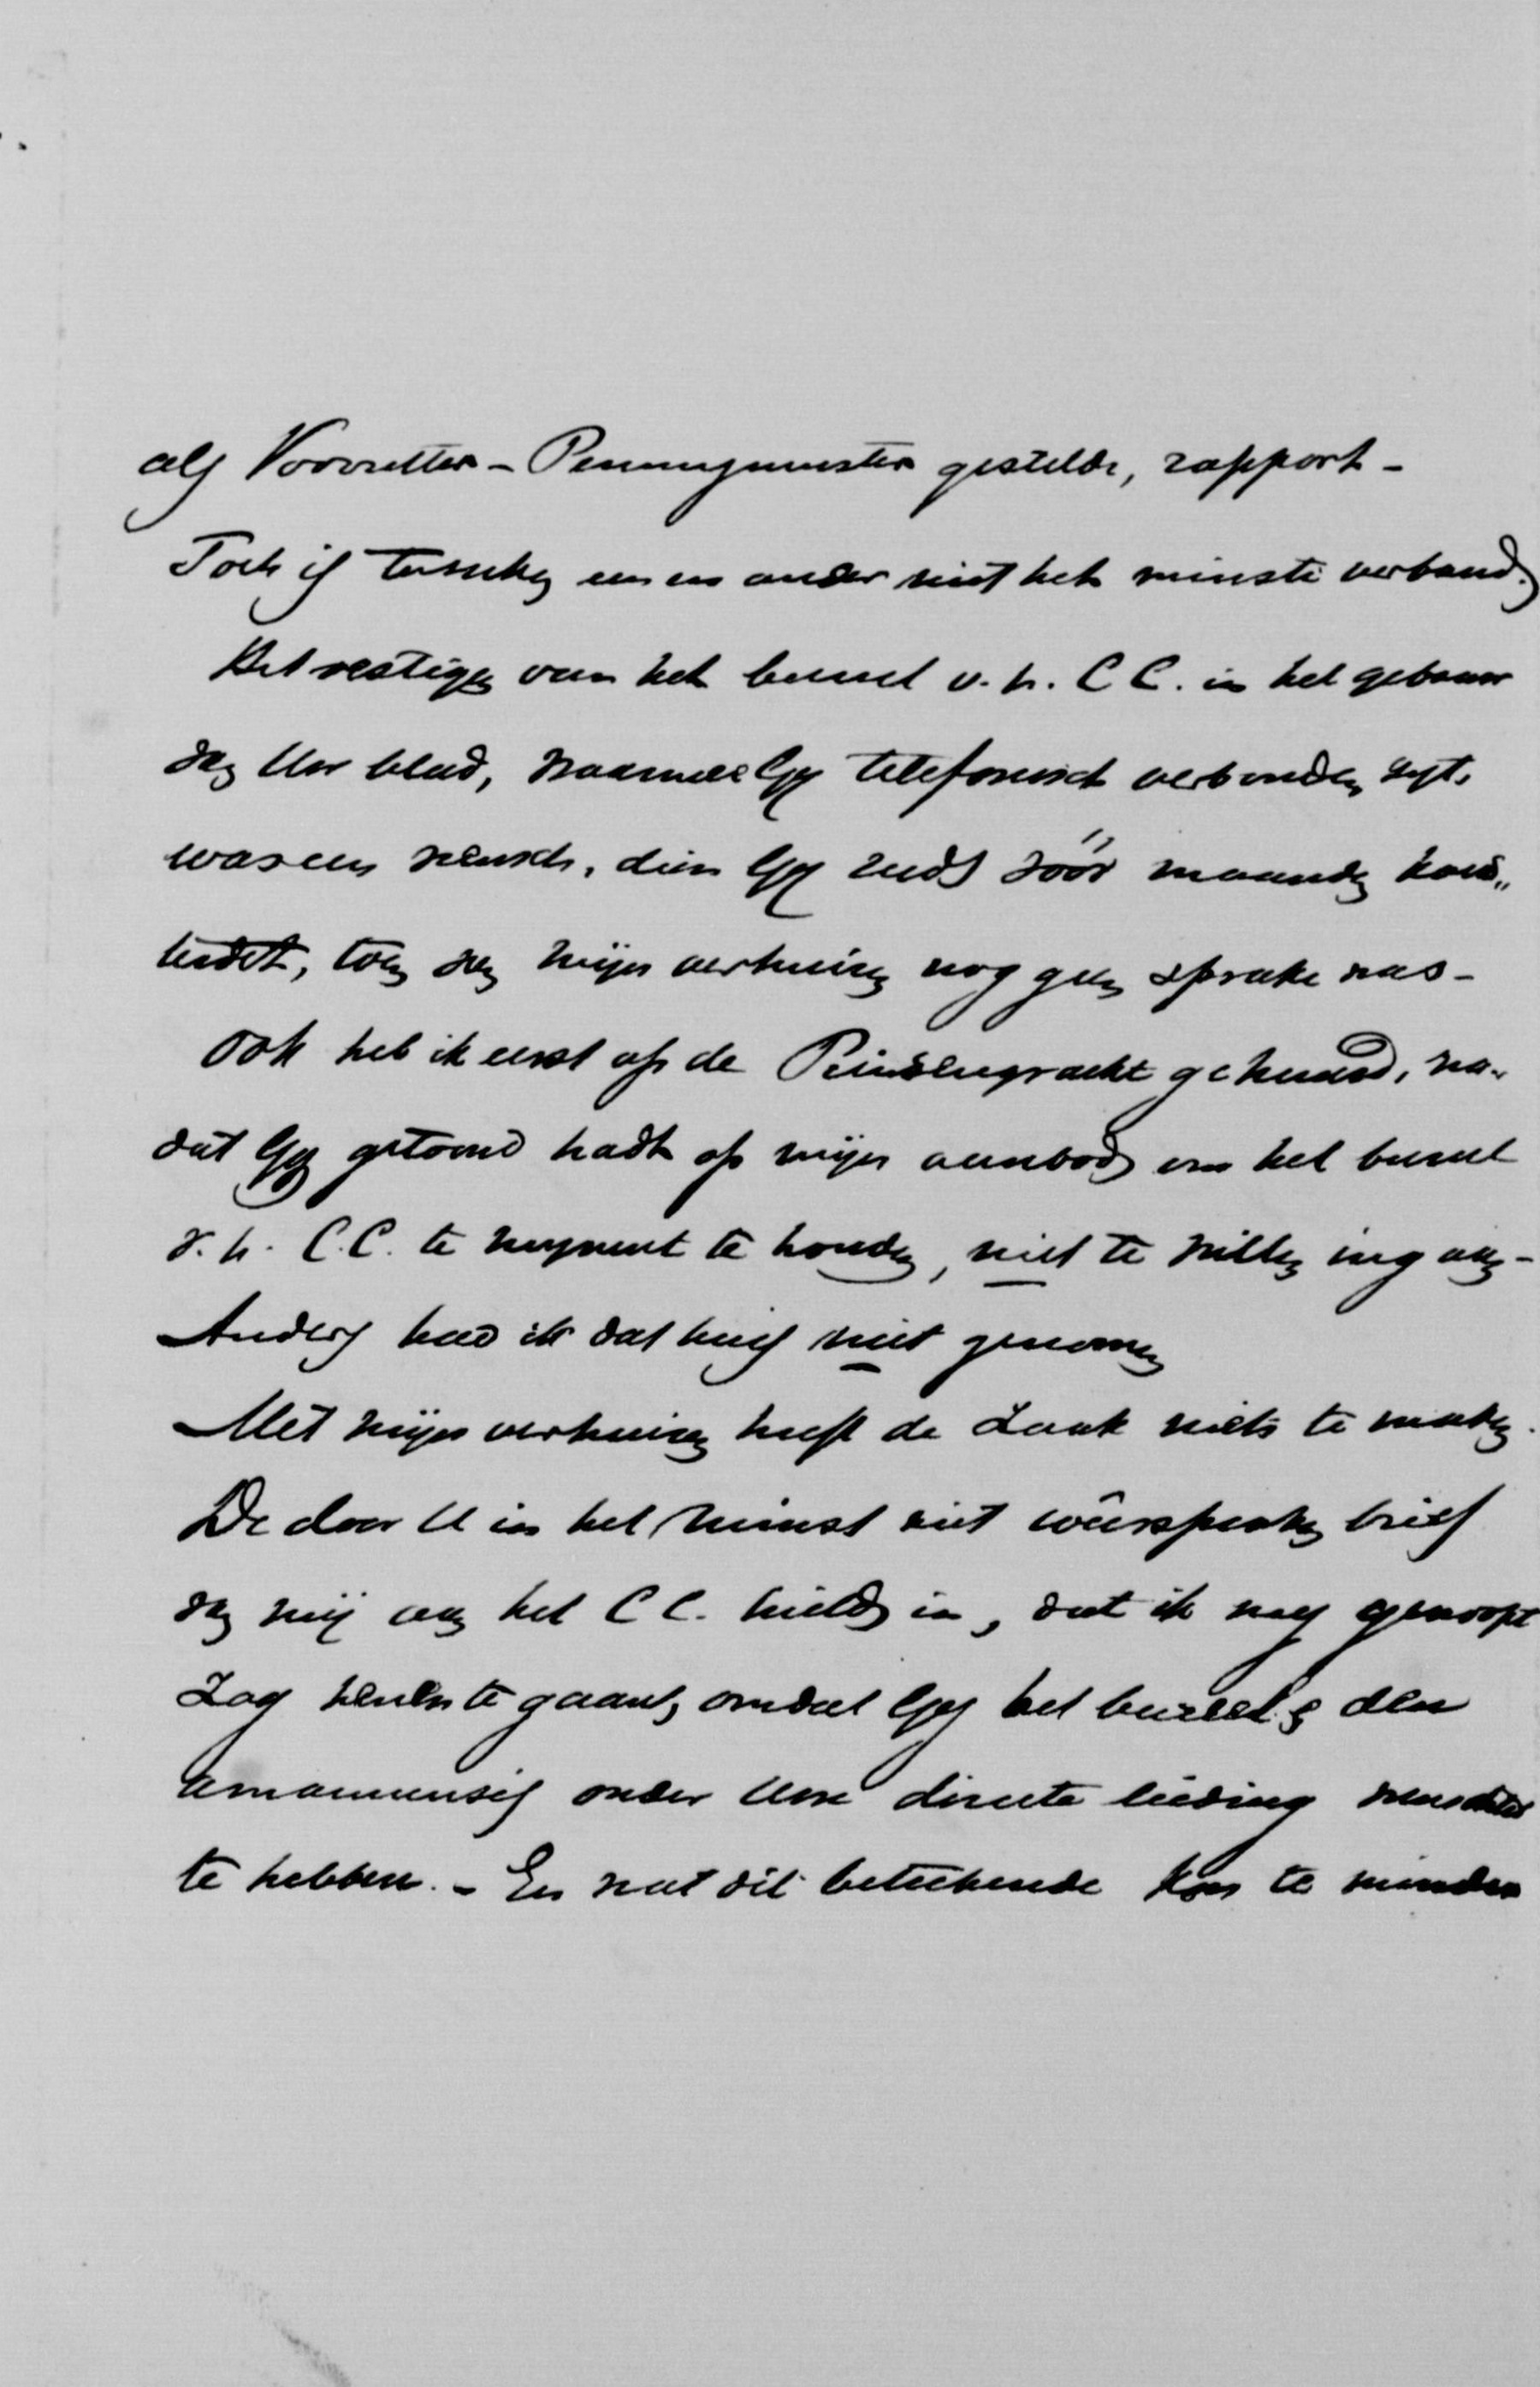 als Voorzitter-Penningmeester gestelde, rapport -
Toch is tusschen een en ander niet het minste verband.
Het vestigen van het bureel v. h. C C. in het gebouw
van Uw blad, waarmee Gij telefonisch verbonden zijt,
was een wensch, dien Gij reeds vóór maanden koes„
terdet, toen van mijn verhuizing nog geen sprake was -
Ook heb ik eerst op de Prinsengracht gehuurd, na„
dat Gij getoond hadt op mijn aanbod om het bureel
v. h. C.C. te mijnent te houden, niet te willen ingaan -
Anders had ik dat huis niet genomen
Met mijn verhuizing heeft de zaak niets te maken.
De door U in het minst niet weersproken brief
van mij aan het C C. hield in, dat ik mij genoopt
zag heen te gaan, omdat Gij het bureel & den
amanuensis onder Uwe directe leiding wenschtet
te hebben. - En wat dit beteekende kon te minder